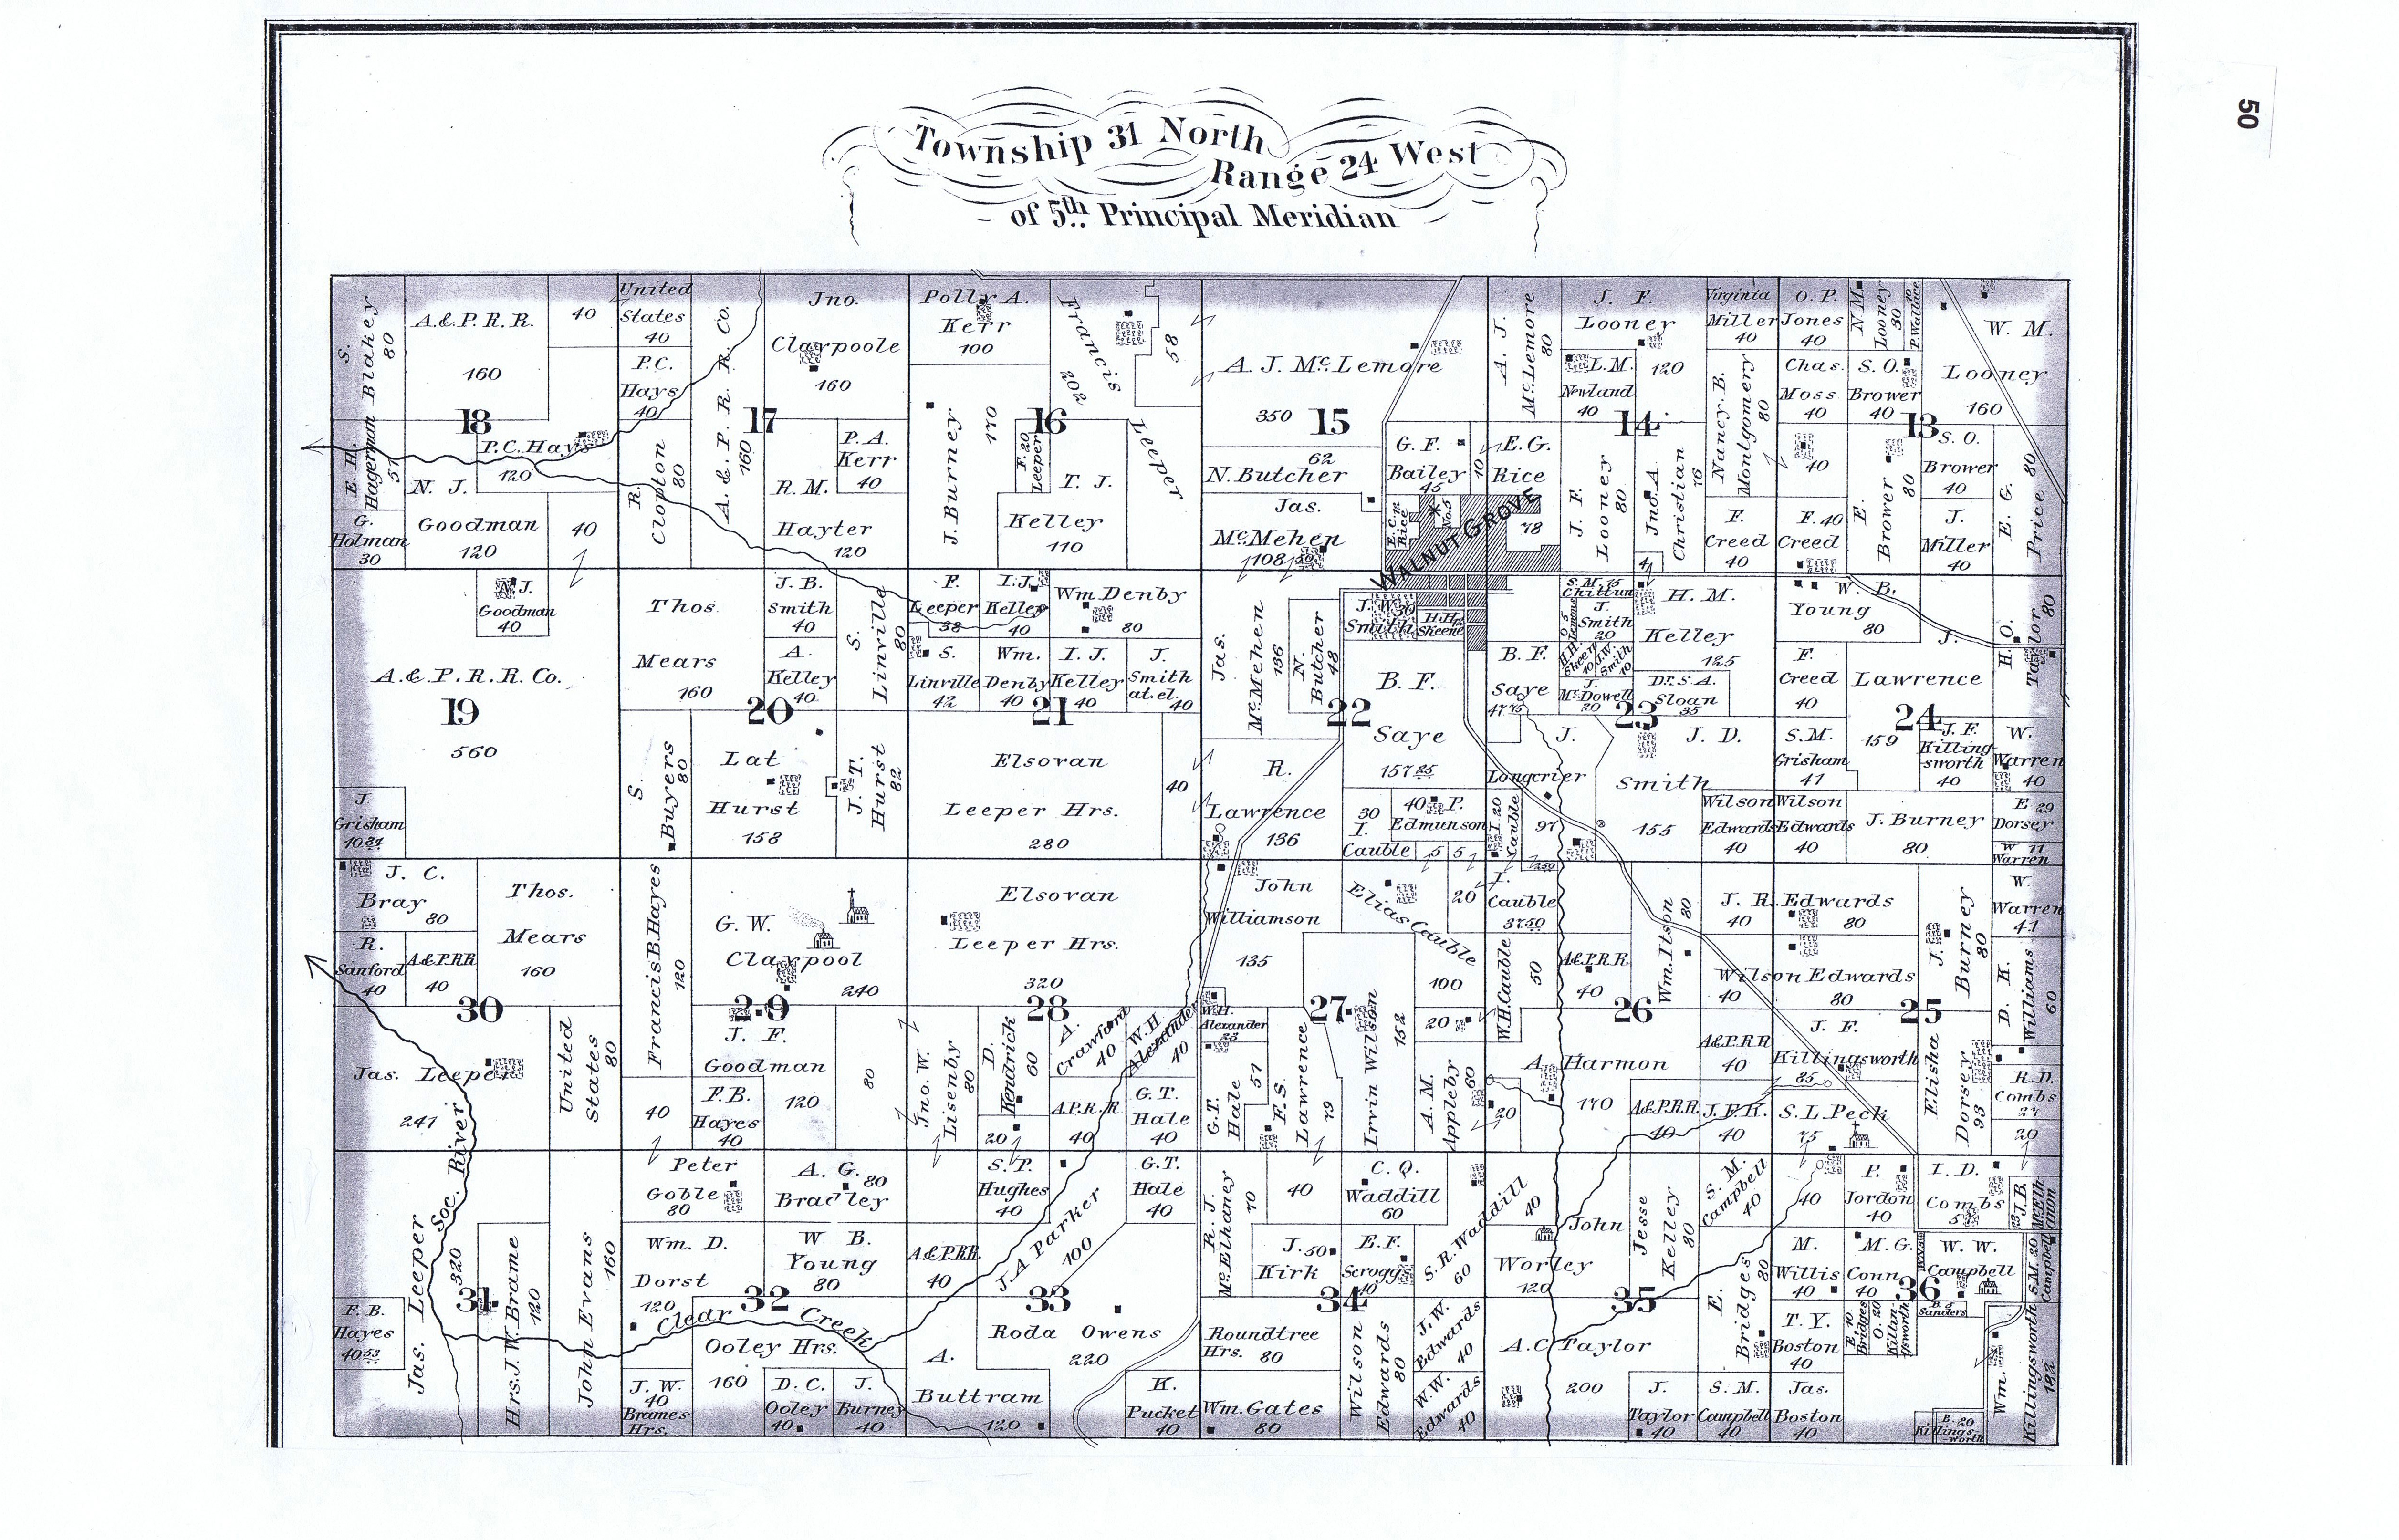 50
Township 31 North
Range 24 West
of 5th Principal Meridian
S. Blakey 80
A.&P.R.R.
160
40
United
States
40
P.C.
Hays
40
A.&P.R.R.Co.
160
Jno.
Claypoole
160
Polly A.
Kerr
100
Francis Leeper
202
58
A. J. McLemore
350
A. J. McLemore 80
J. F.
Looney
120
L.M.
Newland
40
Virginia
Miller
40
O. P.
Jones
40
N.M. Looney 30
P. Wallace
W. M.
Looney
160
Chas.
Moss
40
S. O.
Brower
40
Nancy B. Montgomery 80
18
17
16
15
14
13
E. H. Hagerman 57
P.C. Hays
120
N. J.
Goodman
120
40
G.
Holman
30
R. Clopton 80
R. M.
Hayter
120
P. A.
Kerr
40
J. Burney 170
F. 20
Leeper
T. J.
Kelley
110
62
N. Butcher
Jas.
McMehen
108
G. F.
Bailey
45
10
E. G.
Rice
78
E.C.R. Rice
No.5
WALNUT GROVE
J. F. Looney 80
Jno. A. Christian 76
4
F.
Creed
40
40
F. 40
Creed
E. Brower 80
S. O.
Brower
40
J.
Miller
40
E. G. Price 80
N. J.
Goodman
40
A.&P.R.R.Co.
19
560
J.
Grisham
Thos.
Mears
160
J. B.
Smith
40
A.
Kelley
40
S. Linville 80
20
F.
Leeper
38
I. J.
Kelley
40
Wm. Denby
80
S.
Linville
42
Wm.
Denby
40
I. J.
Kelley
40
J.
Smith
at. el.
40
21
Jas. McMehen 136
N. Butcher 48
J. W. 30
Smith
H.H.
Skeene
B. F.
Saye
157 85
22
B. F.
Saye
47 75
S. M. 15
Chittun
J.
Smith
20
J.W. Smith 10
J.
McDowell
20
Dr. S. A.
Sloan
35
H. M.
Kelley
125
23
W. B.
Young
80
F.
Creed
40
J.
Lawrence
159
24
H. O. Taylor 80
S. Buyers 80
Lat
Hurst
158
J. T. Hurst 82
Elsovan
Leeper Hrs.
280
40
R.
Lawrence
136
30
I.
Cauble
40 P.
Edmunson
5 5
I. 20
Cauble
J.
Longcrier
97
J. D.
Smith
155
S. M.
Grisham
41
J. F.
Killing-
sworth
40
W.
Warren
40
Wilson
Edwards
40
Wilson
Edwards
40
J. Burney
80
E 29
Dorsey
W 11
Warren
J. C.
Bray
80
R.
Sanford
40
A&PRR
40
Thos.
Mears
160
Francis B. Hayes 120
G. W.
Claypool
240
Elsovan
Leeper Hrs.
320
John
Williamson
135
Elias Cauble
100
20
I.
Cauble
37 50
W.H. Cauble 50
A&P.R.R.
40
Wm. Itson 80
J. R. Edwards
40
80
Wilson Edwards
40
80
J. Burney 80
W.
Warren
41
D. K. Williams 60
30
29
28
27
26
25
Jas. Leeper
241
United States 80
40
J. F.
Goodman
120
F. B.
Hayes
40
80
Jno. W. Lisenby 80
D. Kendrick 60
20
A. Crawford 40
W. H. Alexander 40
A.P.R.R
40
G. T.
Hale
40
W.H.
Alexander
23
G. T. Hale 51
F. S. Lawrence 79
Irvin Wilson 152
20
A. M. Appleby 60
20
A. Harmon
170
A&P.R.R
40
A&P.R.R.
40
J. F. K.
40
J. F.
Killingsworth
85
S. L. Peck
75
Elisha Dorsey 93
R. D.
Combs
27
20
Soc. River
Jas. Leeper 320
Hrs. J. W. Brame 120
F. B.
Hayes
40 53
John Evans 160
Peter
Goble
80
A. G. 80
Bradley
Wm. D.
Dorst
120
W B.
Young
80
Clear Creek
Ooley Hrs.
160
J. W.
40
Brames
Hrs.
D. C.
Ooley
40
J.
Burney
40
S. P.
Hughes
40
A&P.RR.
40
J. A. Parker 100
G. T.
Hale
40
Roda Owens
220
A.
Buttram
120
K.
Pucket
40
31
32
33
34
35
36
R. J. McElhaney 70
40
J. 50
Kirk
C. Q.
Waddill
60
E. F.
Scroggs
40
S. R. Waddill 60
40
Roundtree
Hrs. 80
Wm. Gates
80
Wilson Edwards 80
J. W. Edwards 40
W. W. Edwards 40
John
Worley
120
Jesse Kelley 80
A. C. Taylor
200
J.
Taylor
40
S. M. Campbell 40
E. Bridges 80
S. M.
Campbell
40
40
P.
Jordon
40
I. D.
Combs
J. B. McElhanon 23
M.
Willis
40
M. G.
Conn
40
W. W.
Campbell
S. M. 20
Campbell
T. Y.
Boston
40
E. 10
Bridges
O. 20
Killingsworth
B. F.
Sanders
Jas.
Boston
40
B. 20
Killings-
worth
Wm. Killingsworth 182